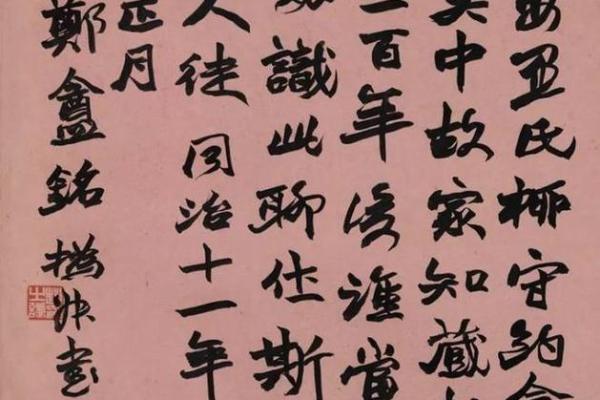 氏柳守
中故家知藏
百年後誰當
識此聊仕斯
人徒同治十一年
正月
鄭盦銘撝叔書